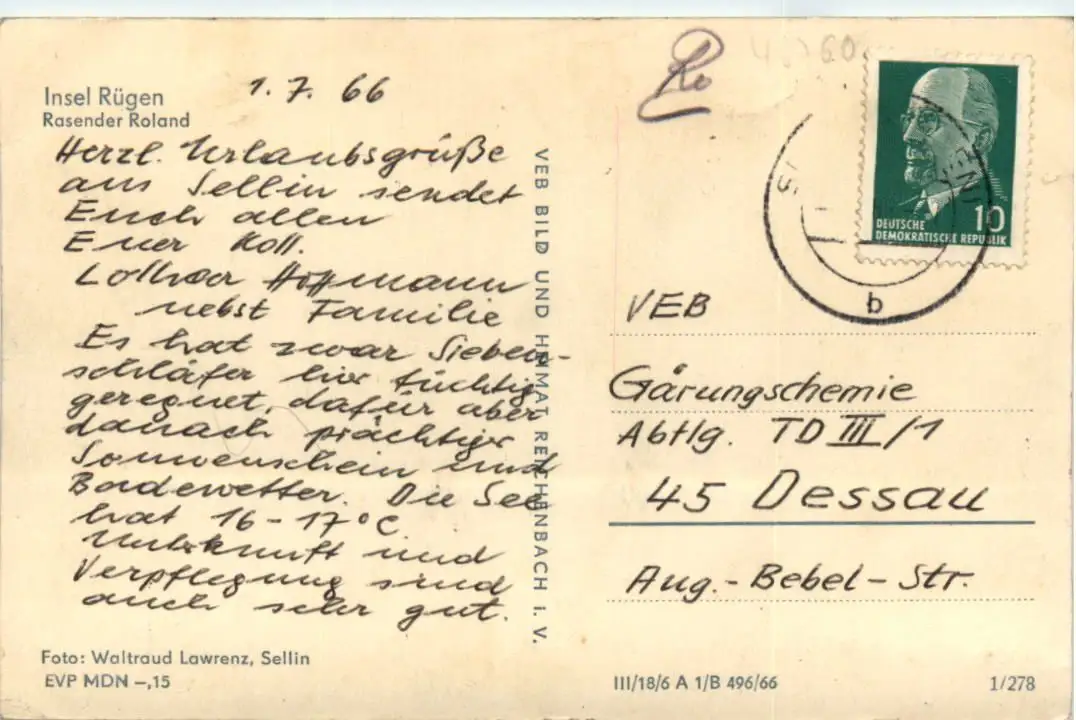 Insel Rügen
Rasender Roland
1.7.66
Herzl. Urlaubsgrüße
aus Sellin sendet
Euch allen
Euer Koll.
Lothar Hoffmann
nebst Familie
Es hat zwar Sieben-
schläfer hier tüchtig
geregnet, dafür aber
danach prächtiger
Sonnenschein und
Badewetter. Die See
hat 16-17°C.
Unterkunft und
Verpflegung sind
auch sehr gut.
Foto: Waltraud Lawrenz, Sellin
EVP MDN –,15
VEB BILD UND HEIMAT REICHENBACH I. V.
60
DEUTSCHE
DEMOKRATISCHE REPUBLIK
10
b
VEB
Gärungschemie
Abtlg. TD III/1
45 Dessau
Aug.-Bebel-Str.
III/18/6 A 1/B 496/66
1/278